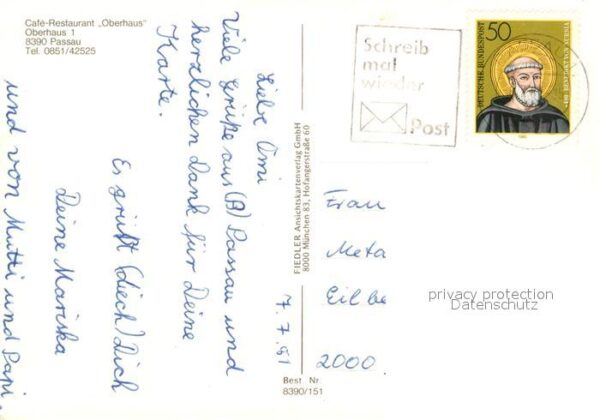 Café-Restaurant „Oberhaus"
Oberhaus 1
8390 Passau
Tel. 0851/42525
Schreib
mal
wieder
Post
DEUTSCHE BUNDESPOST
50
Liebe Omi
Viele Grüße aus (B) Passau und
herzlichen Dank für Deine
Karte.
Es grüßt (diech) Dich
Deine Mariska
und von Mutti und Papi.
7.7.81
FIEDLER Ansichtskartenverlag GmbH
8000 München 83, Hofangerstraße 60
Best Nr.
8390/151
Frau
Meta
Eilbe
2000.
privacy protection
Datenschutz